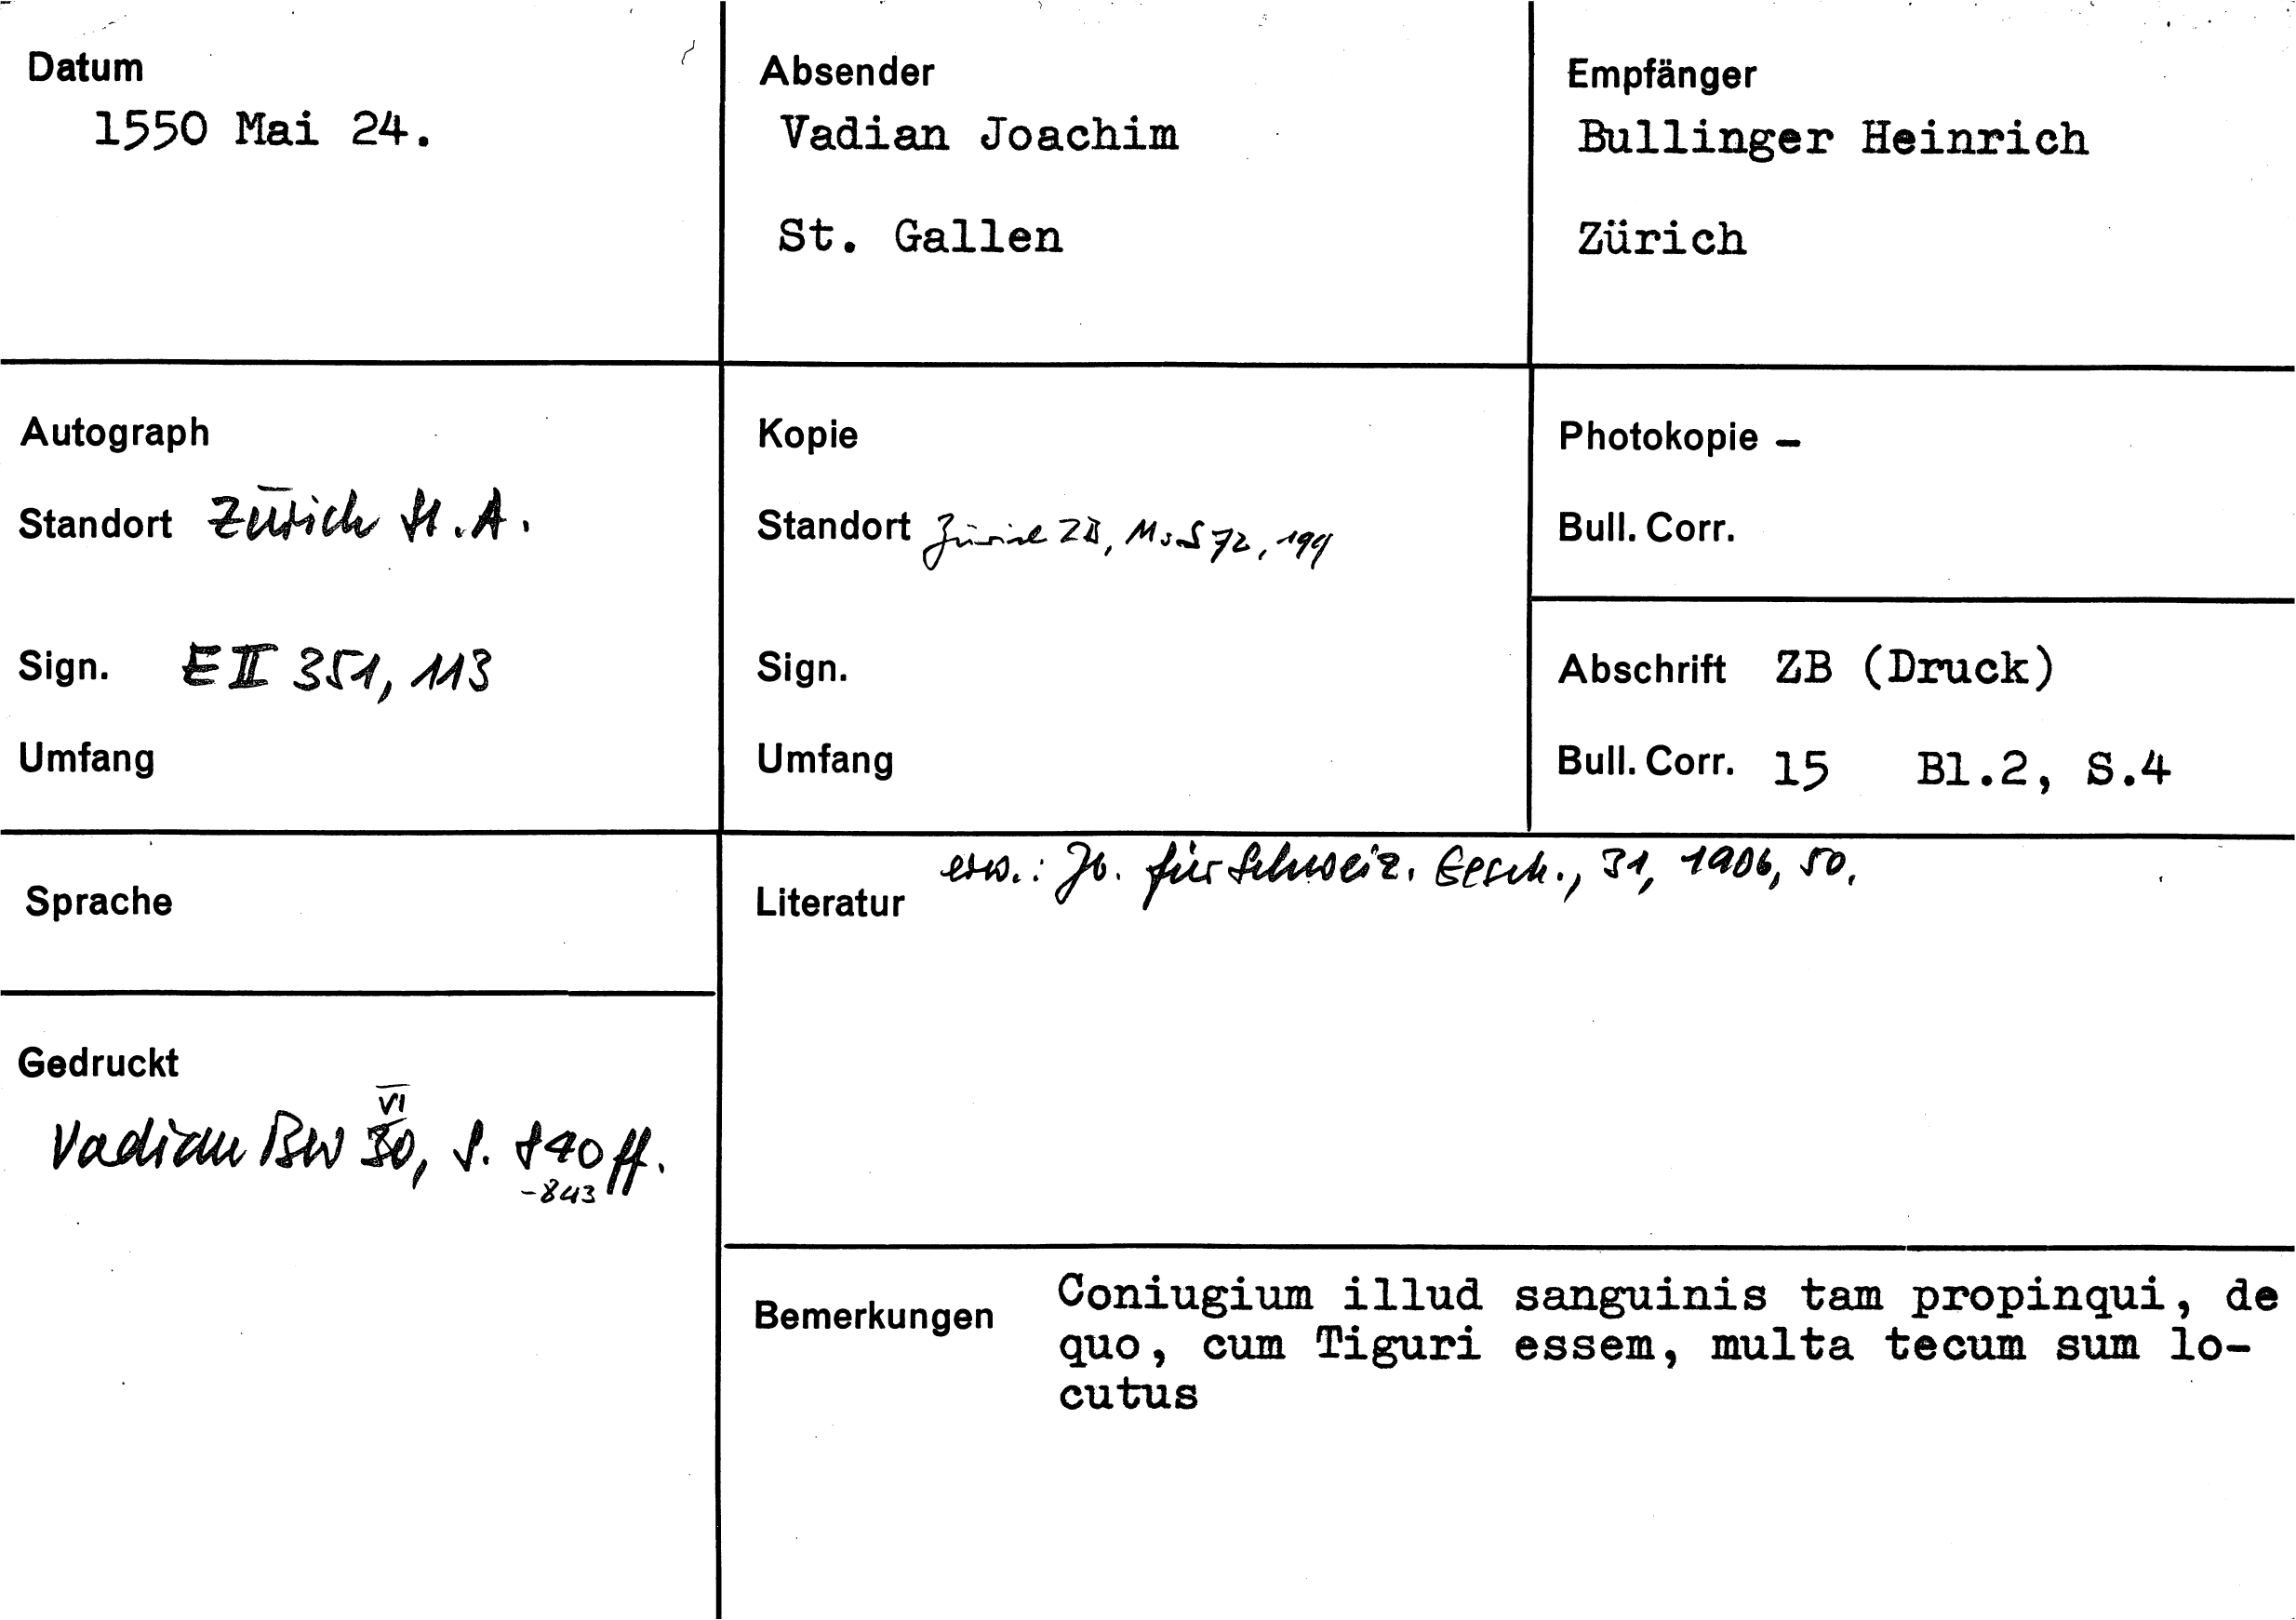 Datum
1550 Mai 24.
Absender
Vadian Joachim
St. Gallen
Empfänger
Bullinger Heinrich
Zürich
Autograph
Standort Zürich St.A.
Sign. E II 351, 113
Umfang
Kopie
Standort Zürich ZB, Ms S 72, 199
Sign.
Umfang
Photokopie –
Bull. Corr.
Abschrift ZB (Druck)
Bull. Corr. 15 Bl.2, S.4
Sprache
Gedruckt
VI
Vadian BW 30, S. 840 ff.
-843
Literatur erw.: Jb. für Schweiz. Gesch., 31, 1906, 50.
Bemerkungen Coniugium illud sanguinis tam propinqui, de
quo, cum Tiguri essem, multa tecum sum lo-
cutus